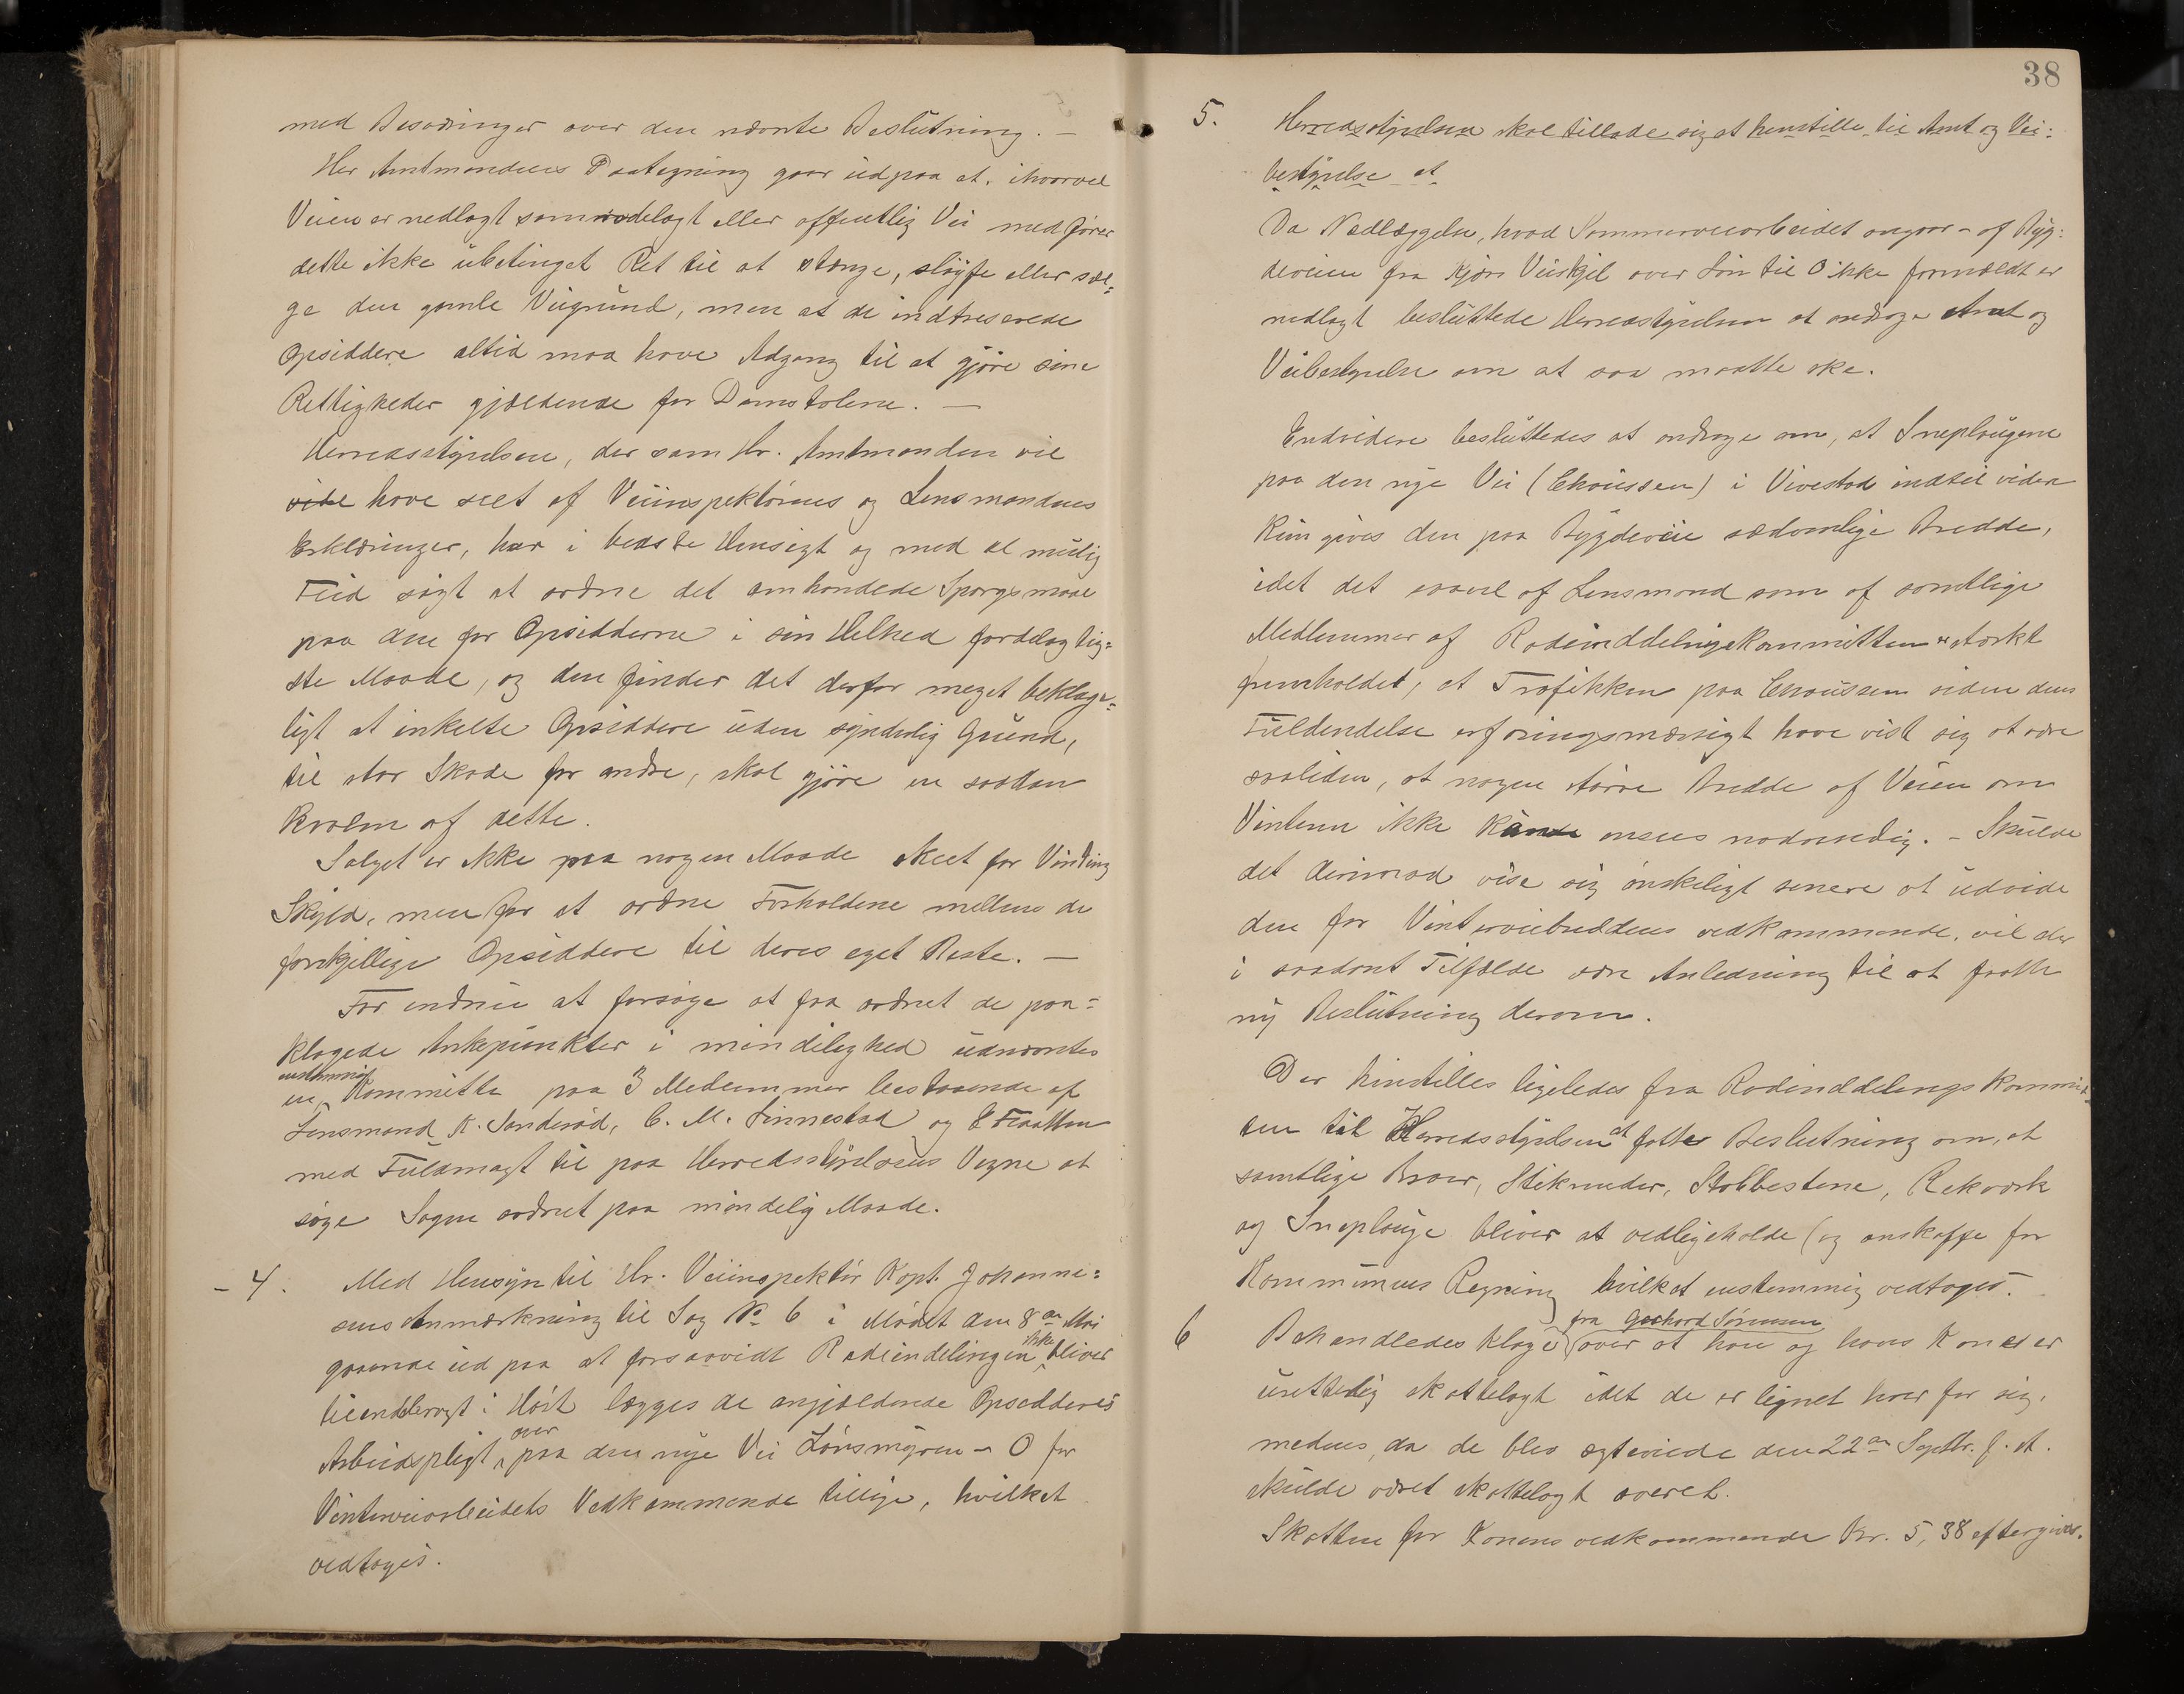 med Besværinger over den nævnte Beslutning. —
Her Amtmandens Paategning gaar ud paa at, ihvorvel
Veien er nedlagt som rodelagt eller offentlig Vei medfører
dette ikke ubetinget Ret til at stænge, sløife eller sæl=
ge den gamle Veigrund, men at de indtreserede
Opsiddere altid maa have Adgang til at gjøre sine
Rettigheder gjældende for Domstolene. —
Herredsstyrelsen, der som Hr. Amtmanden vil
vide have seet af Veiinspektørens og Lensmandens
Erklæringer, har i bedste Hensigt og med al mulig
Flid søgt at ordne det omhandlede Spørgsmaal
paa den for Opsidderne i sin Helhed fordelagtig=
ste Maade, og den finder det derfor meget beklage=
ligt at enkelte Opsiddere uden synderlig Grund,
til stor Skade for andre, skal gjøre en saadan
Kvalm af dette.
Salget er ikke paa nogen Maade skeet for Vinding
Skyld, men for at ordne Forholdene mellem de
forskjellige Opsiddere til deres eget Beste. —
For endnu at forsøge at faa ordnet de paa=
klagede Ankepunkter i mindelighed udnævntes
enstemmig
en Kommitte paa 3 Medlemmer bestaaende af
Lensmand K. Sanderød, C. M. Linnestad og E Flaatten
med Fuldmagt til paa Herredsstyrelsens Vegne at
søge Sagen ordnet paa mindelig Maade.
- 4. Med Hensyn til Hr. Veiinspektør Kapt. Johanne=
sens Anmærkning til Sag No 6 i Mødet den 8de Mai
gaaende ud paa at forsaavidt Rodeindelingen ikke bliver
tilendebragt i Høst lægges de angjældende Opsidderes
Arbeidspligt over paa den nye Vei Lønsmyren - O for
Vinterveiarbeidets Vedkommende tillige, hvilket
vedtoges.
38
5. Herredsstyrelsen skal tillade sig at henstille til Amt og Vei=
bestyrelse at
Da Nedlæggelse, hvad Sommerveiarbeidet angaar - af Byg=
deveien fra Kjøn Veiskjel over Løn til O ikke formældt er
nedlagt besluttede Herredstyrelsen at andrage Amt og
Veibestyrelse om at saa maatte ske.
Endvidere besluttedes at andrage om, at Sneplougene
paa den nye Vei (Chausseen) i Vivestad indtil videre
Kun gives den paa Bygdeveie sædvanlige Bredde,
idet det saavel af Lensmand som af samtlige
Medlemmer af Rodeinddelingskommitten er stærkt
fremholdet, at Trafikken paa Chausseen siden dens
Fuldendelse erfaringsmæssigt have vist sig at være
saaliden, at nogen større Bredde af Veien om
Vinteren ikke Kan ansees nødvendig. - Skulde
det derimod vise sig ønskeligt senere at udvide
den for Vinterveibreddens vedkommende, vil der
i saadant Tilfælde være Anledning til at fatte
ny Beslutning derom.
Der henstilles ligeledes fra Rodeinddelings Kommit=
ten til Herredsstyrelsen at fatte Beslutning om, at
samtlige Broer, Stikrender, Stabbestene, Rekværk
og Sneplouge bliver at vedligeholde (og anskaffe for
Kommunens Regning hvilket enstemmig vedtoges.
6 Behandledes Klage fra Gerhard Sørensen over at han og hans Kone er
urettelig skattelagt idet de er lignet hver for sig,
medens, da de blev ægteviede den 22de Septbr. f. A.
skulde været skattelagt overet.
Skatten for Konens vedkommende Kr. 5,38 eftergives.